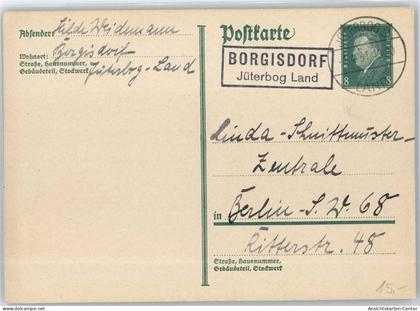 Absender: Hilde Widemann
Wohnort: Borgisdorf
Straße, Hausnummer,
Gebäudeteil, Stockwerk Jüterbog-Land
Postkarte
BORGISDORF
Jüterbog Land
8 8
Linda-Schnittmuster-
Zentrale
in Berlin-S.W. 68
Ritterstr. 48
Straße, Hausnummer,
Gebäudeteil, Stockwerk
15,-
Ansichtskarten-Center